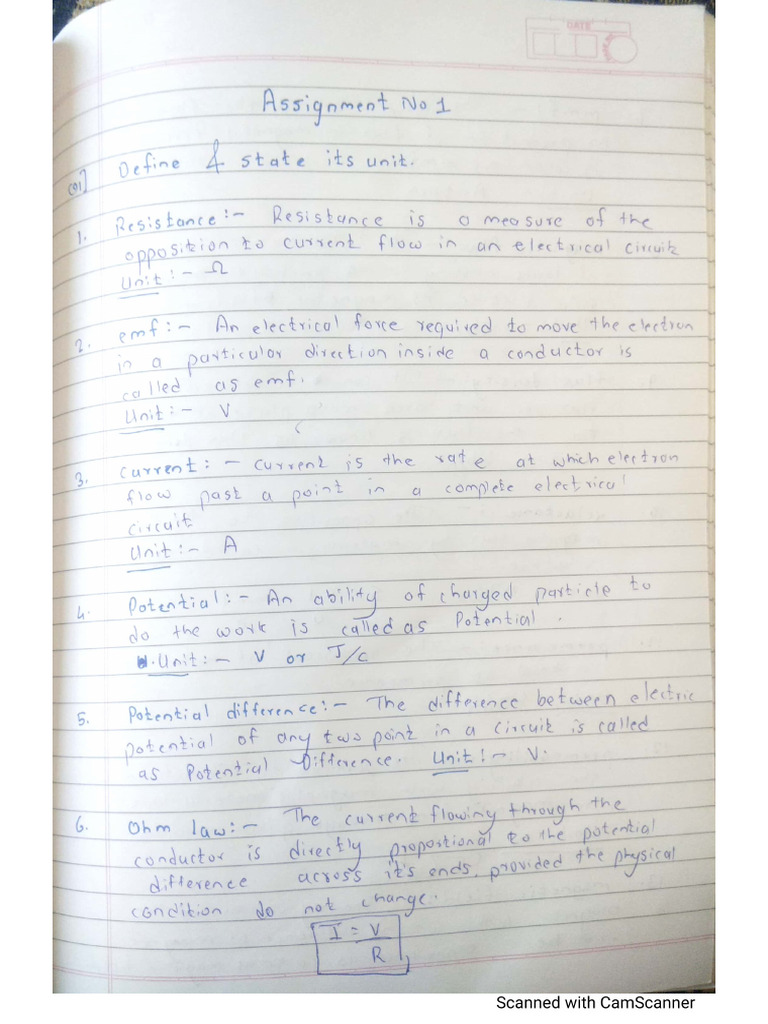 DATE
Assignment No 1
Q1] Define & state its unit.
1. Resistance:- Resistance is a measure of the
opposition to current flow in an electrical circuit
Unit:- Ω
2. emf:- An electrical force required to move the electron
in a particular direction inside a conductor is
called as emf.
Unit:- V
3. Current:- Current is the rate at which electron
flow past a point in a complete electrical
circuit
Unit:- A
4. Potential:- An ability of charged particle to
do the work is called as Potential.
Unit:- V or J/C
5. Potential difference:- The difference between electric
potential of any two point in a circuit is called
as Potential Difference. Unit:- V.
6. Ohm law:- The current flowing through the
conductor is directly proportional to the potential
difference across it's ends, provided the physical
condition do not change.
I = V
R
Scanned with CamScanner